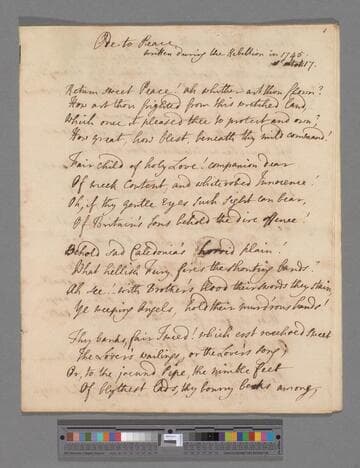 1
Ode to Peace
written during the Rebellion in 1745.
17.
Return sweet Peace! ah whither art thou flown?
How art thou frighted from this wretched Land,
Which once it pleased thee to protect and own;
How great, how blest, beneath thy mild command!
Fair child of holy Love! companion dear
Of meek Content, and white robed Innocence!
Oh, if thy gentle Eyes such sight can bear,
Of Britain's Sons behold the dire offence!
Behold sad Caledonia's horrid plain!
What hellish Fury fires the shouting bands?
Ah see! with Brothers blood their swords they stain
Ye weeping Angels, hold their murd'rous hands!
Thy banks, fair Tweed! which erst ecchoed sweet
The Lovers wailings, or the Lovers song;
Or, to the jocund Pipe, the nimble feet
Of blythest Lads, thy bonny becks among,